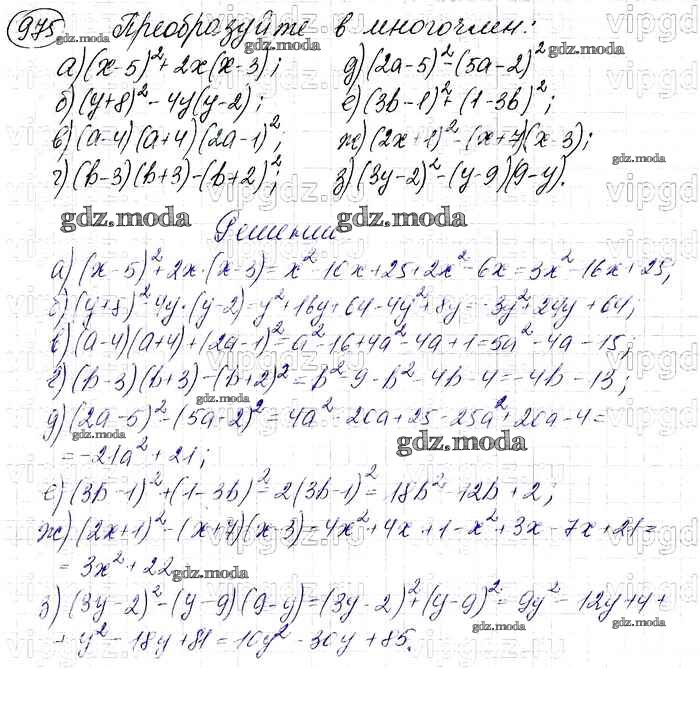 975 Преобразуйте в многочлен:
а) (x-5)²+2x(x-3);
б) (y+8)²-4y(y-2);
в) (a-4)(a+4)(2a-1)²;
г) (b-3)(b+3)-(b+2)²;
д) (2a-5)²-(5a-2)²
е) (3b-1)²+(1-3b)²;
ж) (2x+1)²-(x+7)(x-3);
з) (3y-2)²-(y-9)(9-y).
Решении
а) (x-5)²+2x·(x-3)=x²-10x+25+2x²-6x=3x²-16x+25;
б) (y+8)²-4y·(y-2)=y²+16y+64-4y²+8y=-3y²+24y+64;
в) (a-4)(a+4)+(2a-1)²=a²-16+4a²-4a+1=5a²-4a-15;
г) (b-3)(b+3)-(b+2)²=b²-9-b²-4b-4=-4b-13;
д) (2a-5)²-(5a-2)²=4a²-20a+25-25a²+20a-4=
=-21a²+21;
е) (3b-1)²+(1-3b)²=2(3b-1)²=18b²-12b+2;
ж) (2x+1)²-(x+7)(x-3)=4x²+4x+1-x²+3x-7x+21=
=3x²+22
з) (3y-2)²-(y-9)(9-y)=(3y-2)²+(y-9)²=9y²-12y+4+
+y²-18y+81=10y²-30y+85.
gdz.moda
vipgdz